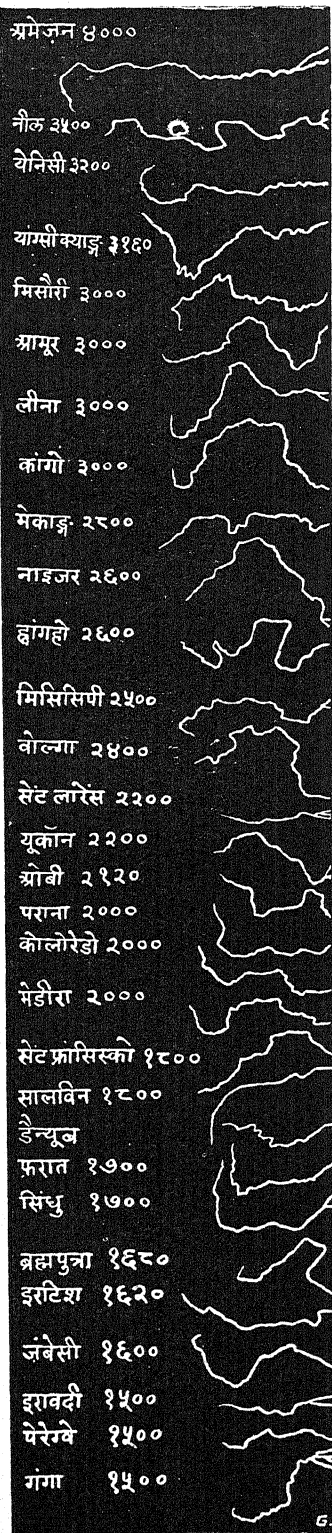 अमेज़न ४०००
नील ३५००
येनिसी ३२००
यांग्सी क्याङ्ग ३१६०
मिसौरी ३०००
आमूर ३०००
लीना ३०००
कांगो ३०००
मेकाङ्ग २८००
नाइजर २६००
ह्वांगहो २६००
मिसिसिपी २५००
वोल्गा २४००
सेंट लारेंस २२००
यूकॉन २२००
ओबी २१२०
पराना २०००
कोलोरेडो २०००
मेडीरा २०००
सेंट फ्रांसिस्को १८००
सालविन १८००
डैन्यूब
फ़रात १७००
सिंधु १७००
ब्रह्मपुत्रा १६८०
इरटिश १६२०
ज़ंबेसी १६००
इरावदी १५००
पेरेग्वे १५००
गंगा १५००
G.